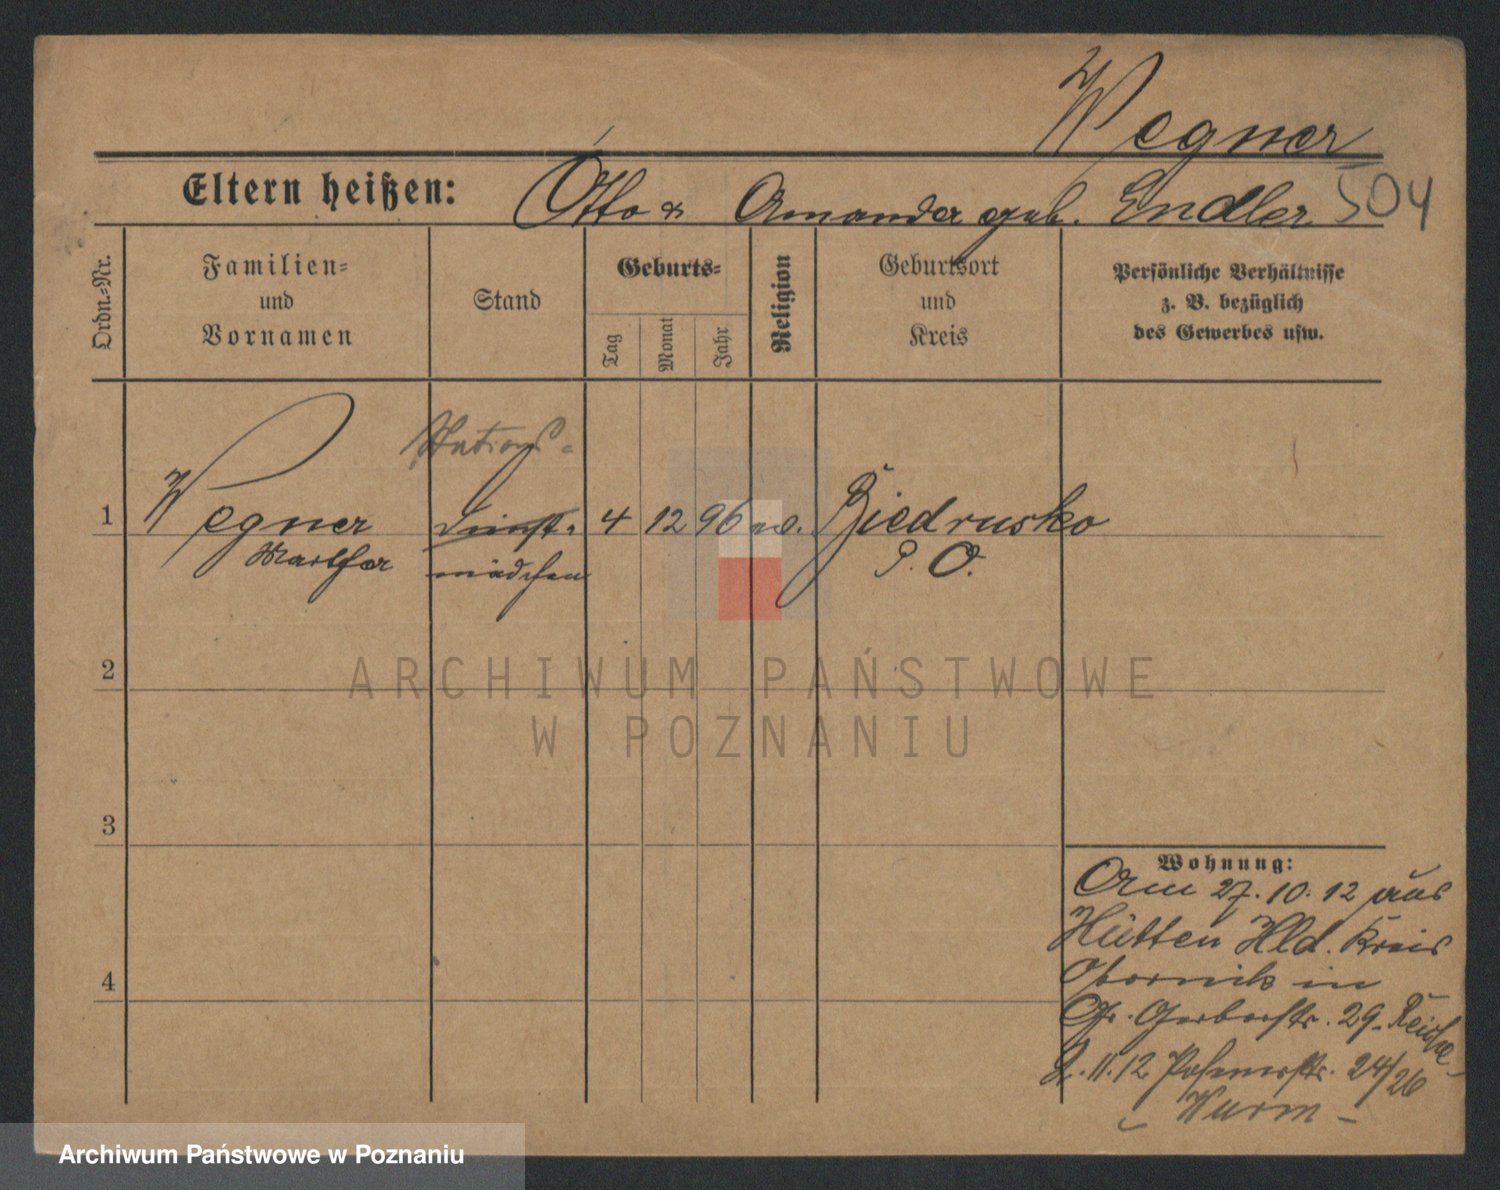 Wegner
Eltern heißen: Otto & Amanda geb. Endler 504
Ordn.-Nr.
Familien-
und
Vornamen
Stand
Geburts-
Tag
Monat
Jahr
Religion
Geburtsort
und
Kreis
Persönliche Verhältnisse
z. B. bezüglich
des Gewerbes usw.
Stations-
1 Wegner Dienst- 4 12 96 ev. Biedrusko
Martha mädchen P. O.
2
ARCHIWUM PAŃSTWOWE
W POZNANIU
3
4
Wohnung:
Am 27.10.12 aus
Hütten Hld. Kreis
Obornik in
Gr. Gerberstr. 29. Reiche
2.11.12 Posenerstr. 24/26
- Wurm -
Archiwum Państwowe w Poznaniu